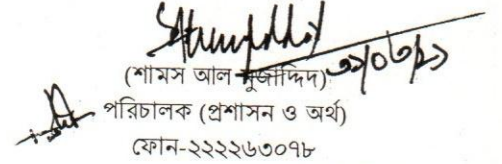 ৩১/০৩/২১
(শামস আল মুজাদ্দিদ)
পরিচালক (প্রশাসন ও অর্থ)
ফোন-২২২২৬৩০৭৮